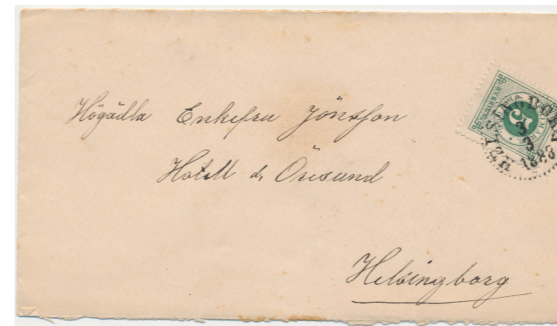 Högädla Enkefru Jönsson
Hotell d. Öresund
Helsingborg
5
HELSINGBORG
3
3
1883